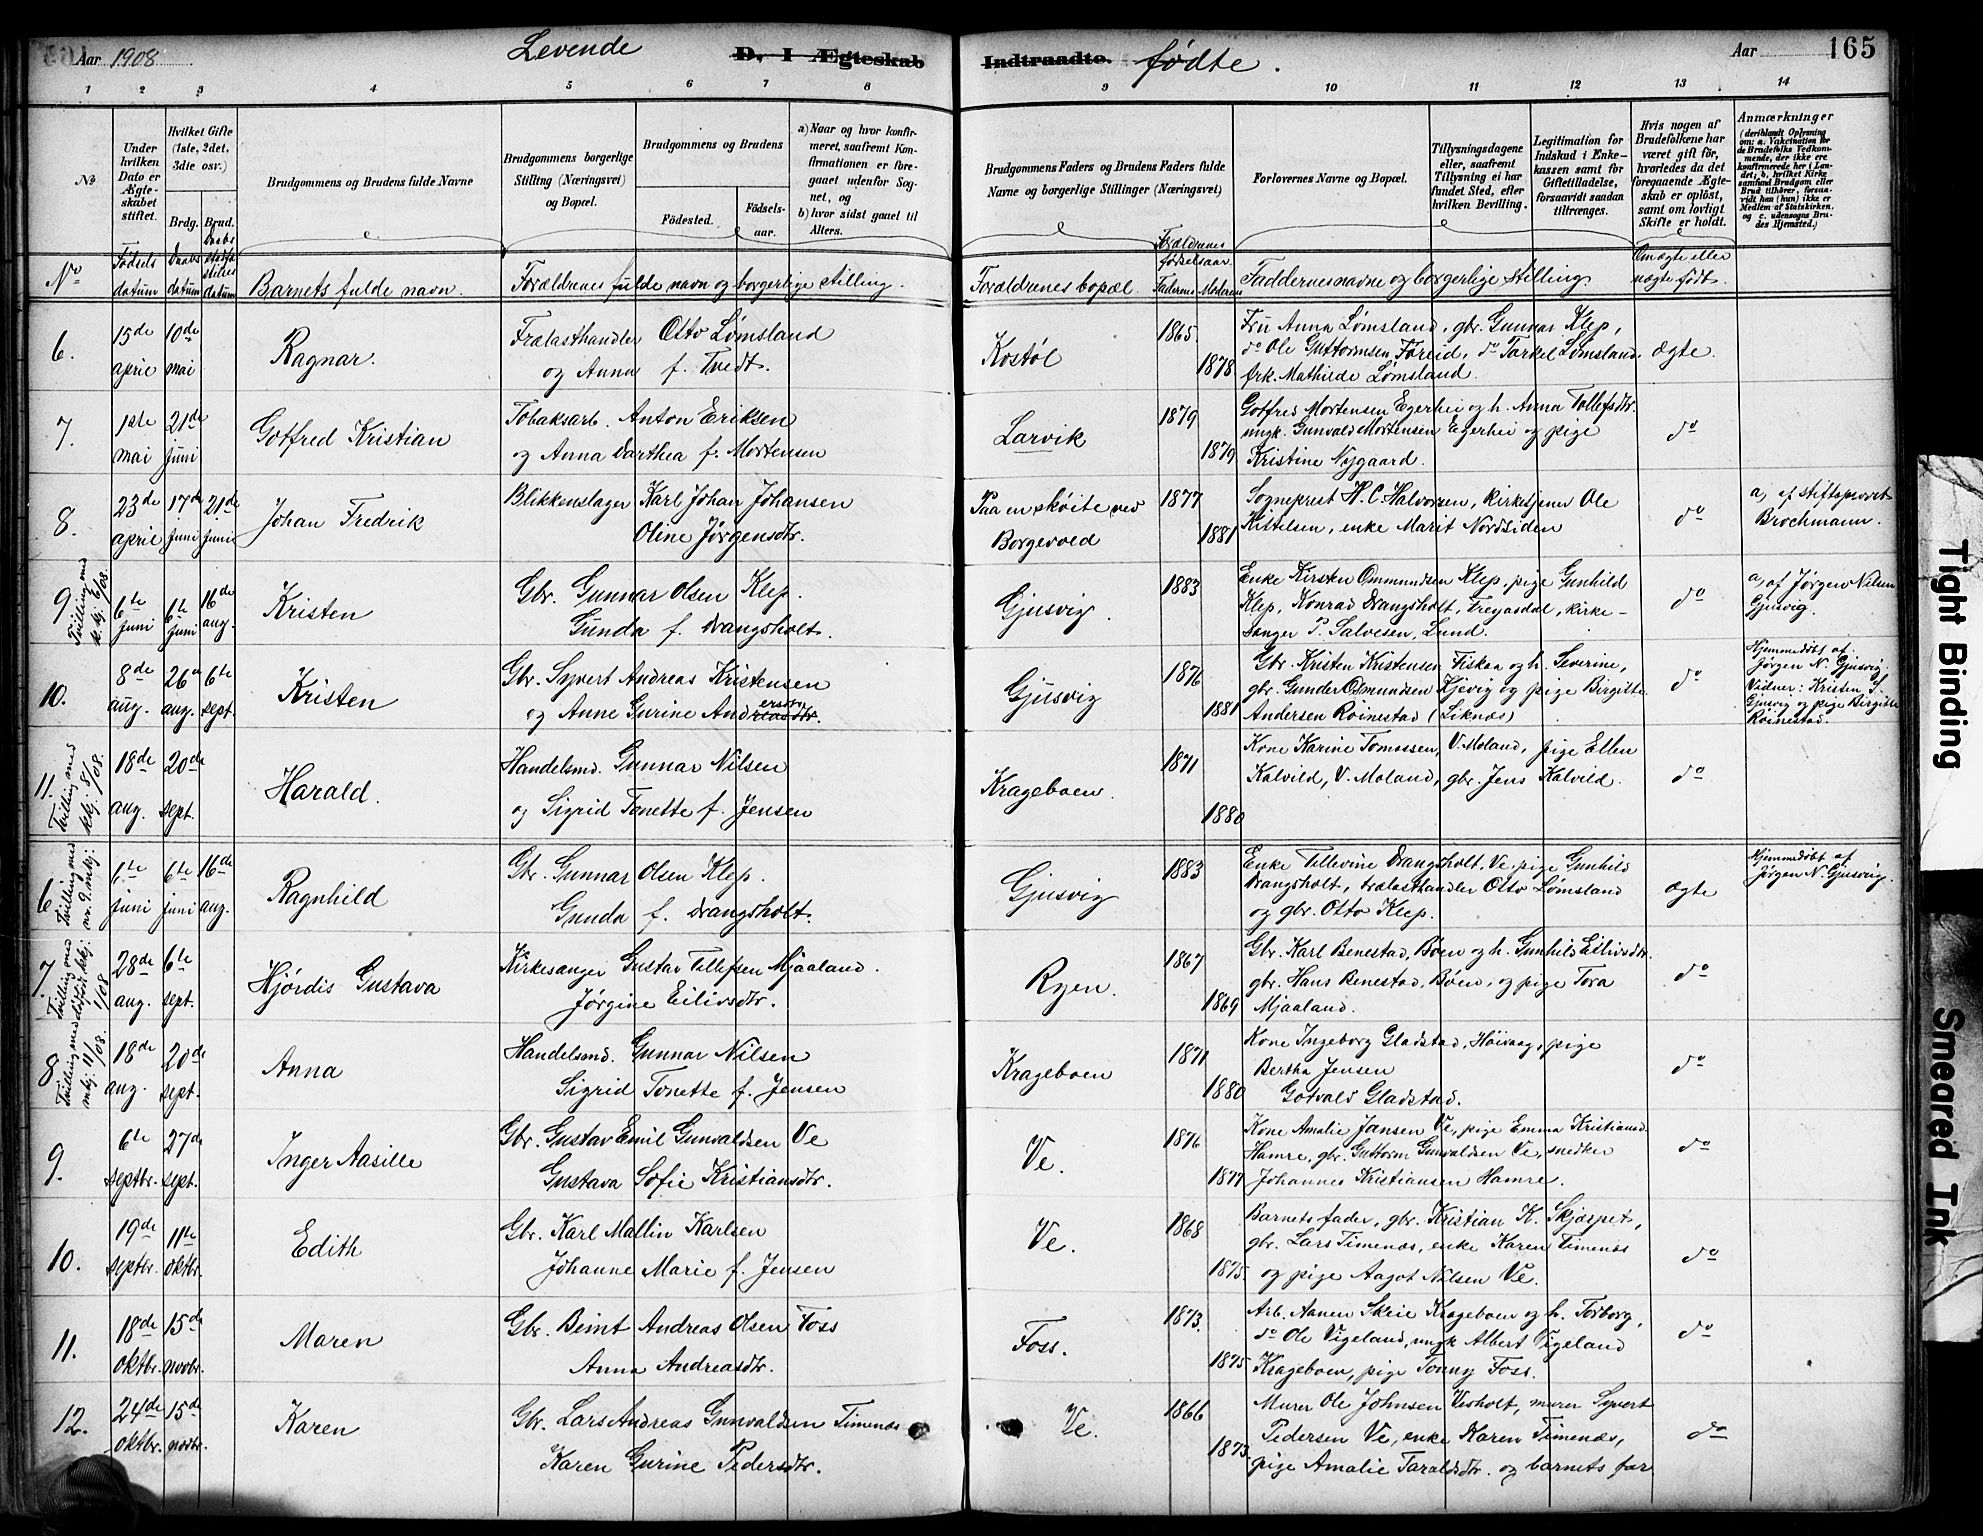 Aar 1908 Levende D. I Ægteskab Indtraadte. fødte. Aar 165
1 2 3 4 5 6 7 8 9 10 11 12 13 14
No
Under hvilken Dato er Ægteskabet stiftet.
Hvilket Gifte (1ste, 2det, 3die osv.)
Brdg. Brud.
Brudgommens og Brudens fulde Navne
Brudgommens borgerlige Stilling (Næringsvei) og Bopæl.
Brudgommens og Brudens
Fødested. Fødselsaar.
a) Naar og hvor konfirmeret, saafremt Konfirmationen er foregaaet udenfor Sognet, og
b) hvor sidst gaaet til Alters.
Brudgommens Faders og Brudens Faders fulde Navne og borgerlige Stillinger (Næringsvei)
Forlovernes Navne og Bopæl.
Tillysningsdagene eller, saafremt Tillysning ei har fundet Sted, efter hvilken Bevilling.
Legitimation for Indskud i Enkekassen samt for Giftetilladelse, forsaavidt saadan tiltrænges.
Hvis nogen af Brudefolkene har været gift før, hvorledes da det foregaaende Ægteskab er opløst, samt om lovligt Skifte er holdt.
Anmærkninger (deriblandt Oplysning om: a. Vakcination for de Brudefolks Vedkommende, der ikke ere konfirmerede her i Landet, b. hvilket Kirkesamfund Brudgom eller Brud tilhører, forsaavidt han (hun) ikke er Medlem af Statskirken, og c. udensogns Brudes Hjemsted.)
No Fødsels datum Daabs datum Daabs stadfæstelses datum Barnets fulde navn. Forældrenes fulde navn og borgerlige stilling. Forældrenes bopæl. Forældrenes fødselsaar Faderens Moderens Faddernes navne og borgerlige stilling Om ægte eller uægte født.
6. 15de april 10de mai Ragnar. Trælasthandler Otto Lømsland og Anna f. Tvedt. Kostøl 1865 1878
Fru Anna Lømsland, gbr. Gunnar Klep,
do Ole Guttormsen Foreid, do Tarkel Lømsland, ægte.
frk. Mathilde Lømsland.
7. 1ste mai 21de juni Gotfred Kristian Tobaksarb. Anton Eriksen og Anna Darthea f. Mortensen Larvik 1879 1879
Gotfred Mortensen Egerhei og h. Anna Tollefsdtr.
ungk. Gunvald Mortensen Egerhei og pige do
Kristine Nygaard.
8. 23de april 17de juni 21de juni Johan Fredrik Blikkenslager Karl Johan Johansen Oline Jørgensdtr. Paa en skøite ved Borgevold 1877 1881
Sogneprest H. C. Halvorsen, kirketjener Ole
Kittelsen, enke Marit Nordsiden do
a, af stiftsprovst Brochmann.
9. Tvilling med k. kj. 6/08. 6te juni 6te juni 16de aug. Kristen Gbr. Gunnar Olsen Klep. Gunda f. Drangsholt. Gjusvig. 1883
Enke Kirsten Ommundsen Klep, pige Gunhild
Klep, Konrad Drangsholt, Tregasdal, kirke- do
sanger P. Salvesen, Lund.
a, af Jørgen Nilsen Gjusvig.
10. 8de aug. 26de aug. 6te sept. Kristen Gbr. Syvert Andreas Kristensen og Anne Gurine Andreasdtr. ersdtr. Gjusvig 1876 1881
Gbr. Kristen Kristensen Fiskaa og h. Severine,
gbr. Gunder Osmundsen Kjevig og pige Birgitte do
Andersen Røinestad (Liknæs)
Hjemmedøbt af Jørgen N. Gjusvig Vidner: Kristen S. Gjusvig og pige Birgitte Røinestad.
11. Tvilling med kkj. 8/08. 18de aug. 20de sept. Harald. Handelsmd. Gunnar Nilsen og Sigrid Tonette f. Jensen Krageboen. 1871 1880
Kone Karine Tomassen, V. Moland, pige Ellen
Kalvild, V. Moland, gbr. Jens Kalvild. do
6 Tvilling med nr. 9. mkj: 6te juni 6te juni 16de aug. Ragnhild Gbr. Gunnar Olsen Klep. Gunda f. Drangsholt. Gjusvig 1883
Enke Tillevine Drangsholt, Ve, pige Gunhild
Drangsholt, trælasthandler Otto Lømsland ægte
og gbr. Otto Klep.
Hjemmedøbt af Jørgen N. Gjusvig.
7. Tvilling med dødfødt kkj: 1/08 28de aug. 6te sept. Hjørdis Gustava Kirkesanger Gustav Tellefsen Mjaaland. Jørgine Eilivsdtr. Ryen. 1867 1869
Gbr. Karl Benestad, Bøen og h. Gunhild Eilivsdtr.
gbr. Hans Benestad, Bøen, og pige Tora do
Mjaaland.
8 Tvilling med mkj. 11/08. 18de aug. 20de sept. Anna Handelsmd. Gunnar Nilsen Sigrid Tonette f. Jensen Krageboen 1871 1880
Kone Ingeborg Gladstad, Høivaag, pige
Bertha Jensen do
Gotvald Gladstad.
9. 6te septbr. 27de sept. Inger Aasille Gbr. Gustav Emil Gunvaldsen Ve Gustava Sofie Kristiansdtr. Ve. 1876 1877
Kone Amalie Jansen Ve, pige Emma Kristiansd.
Hamre, gbr. Guttorm Gunvaldsen Ve, snedker do
Johannes Kristiansen Hamre.
10. 19de septbr. 11te oktbr. Edith Gbr. Karl Mallin Karlsen Johanne Marie f. Jensen Ve. 1868 1875
Barnets fader, gbr. Kristian K. Skjærpet,
gbr. Lars Timenæs, enke Karen Timenæs do
og pige Aagot Nilsen Ve.
11. 18de oktbr. 15de novbr. Maren Gbr. Beint Andreas Olsen Foss Anna Andreasdtr. Foss. 1873. 1875
Arb. Aanen Skeie Krageboen og h. Torborg,
do Ole Vigeland, ungk Albert Vigeland do
Krageboen, pige Tonny Foss.
12. 24de oktbr. 15de novbr. Karen Gbr. Lars Andreas Gunvaldsen Timenæs Karen Gurine Pedersdtr. Ve. 1866 1873
Murer Ole Johnsen Vesholt, murer Syvert
Pedersen Ve, enke Karen Timenæs, do
pige Amalie Taraldsdtr. og barnets far
Tight Binding
Smeared Ink